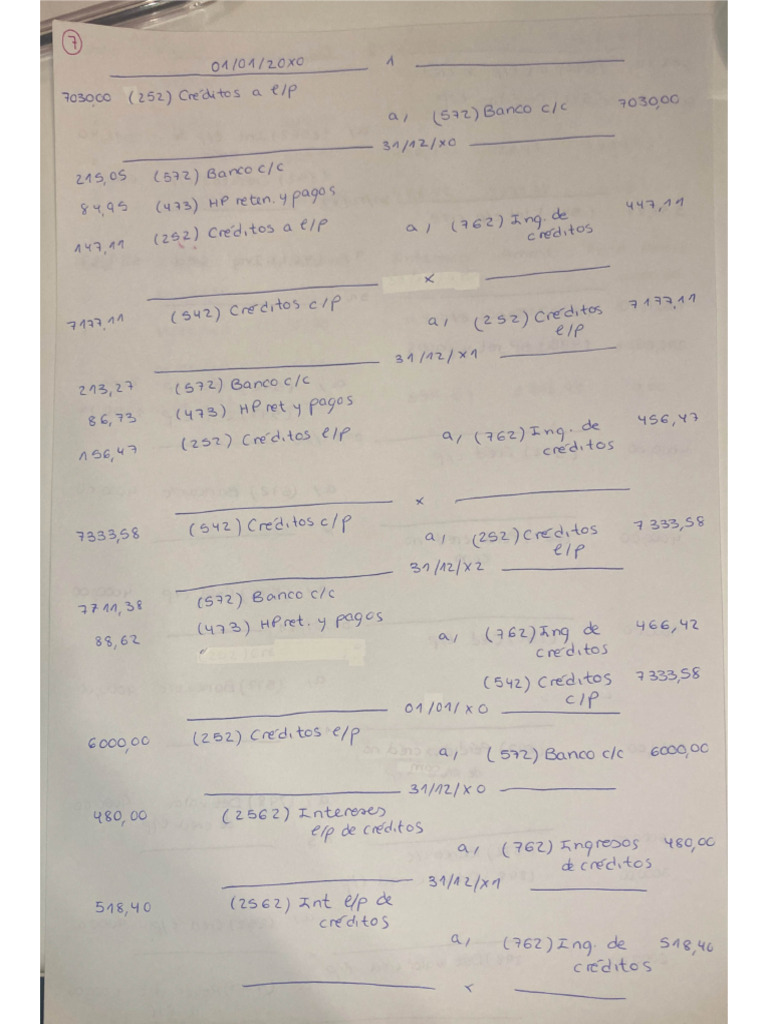 7
01/01/20x0 1
7030,00 (252) Créditos a e/p
a, (572) Banco c/c 7030,00
31/12/x0
215,05 (572) Banco c/c
84,95 (473) HP reten. y pagos
147,11 (252) Créditos a e/p a, (762) Ing. de 447,11
créditos
x
7177,11 (542) Créditos c/p a, (252) Créditos 7177,11
e/p
31/12/x1
213,27 (572) Banco c/c
86,73 (473) HP ret y pagos
156,47 (252) Créditos e/p a, (762) Ing. de 456,47
créditos
x
7333,58 (542) Créditos c/p a, (252) Créditos 7333,58
e/p
31/12/x2
7711,38 (572) Banco c/c
88,62 (473) HP ret. y pagos a, (762) Ing de 466,42
créditos
(542) Créditos 7333,58
c/p
01/01/x0
6000,00 (252) Créditos e/p
a, (572) Banco c/c 6000,00
31/12/x0
480,00 (2562) Intereses
e/p de créditos
a, (762) Ingresos 480,00
de créditos
31/12/x1
518,40 (2562) Int e/p de
créditos
a, (762) Ing. de 518,40
créditos
x